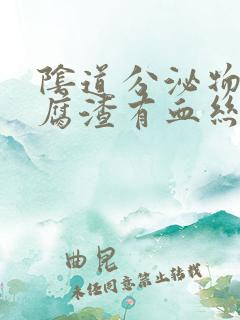 陰道分泌物
腐渣有血絲
曲昆
未经同意禁止转载